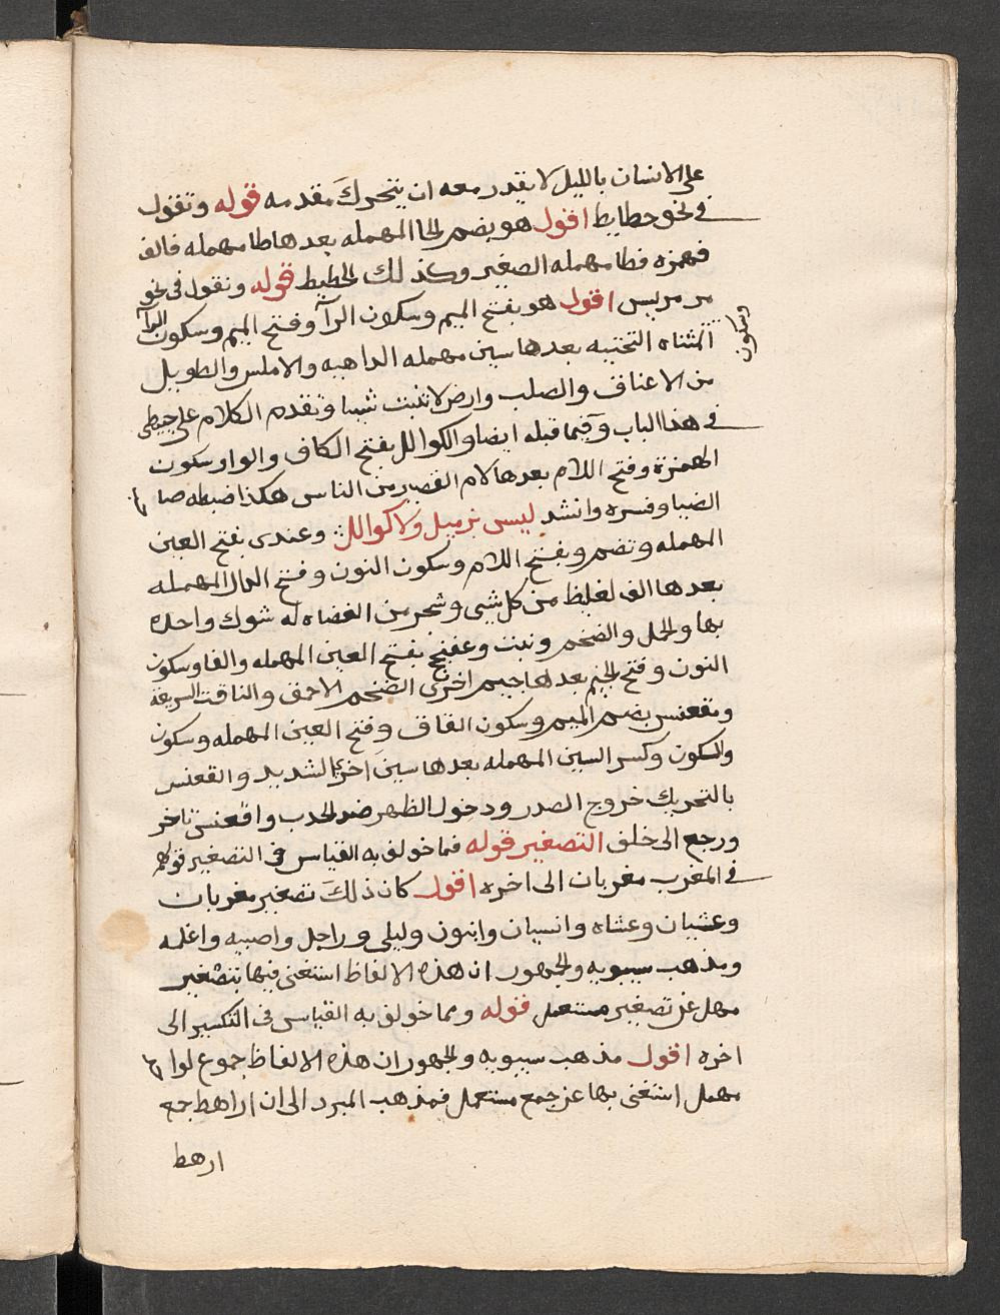 على الانسان بالليل لا يقدر معه ان يتحرك مقدمه قوله وتقول
في نحو حطايط اقول هو بضم الحا المهمله بعدها طا مهمله فالف
فهمزه فطا مهمله الصغير وكذلك الحطيط قوله وتقول في نحو
مرمريس اقول هو بفتح الميم وسكون الرآ وفتح الميم وسكون الرآ
وسكون
المثناه التحتيه بعدها سين مهمله الداهيه والاملس والطويل
من الاعناق والصلب وارض لا تنبت شيا وتقدم الكلام على حبنطى
في هذا الباب وفيما قبله ايضا والكوالل بفتح الكاف والواو وسكون
الهمزة وفتح اللام بعدها لام القصير من الناس هكذا ضبطه صا
الضيا وفسره وانشد ليس بزميل ولا كوالل وعندى بفتح العين
المهمله وتضم وبفتح اللام وسكون النون وفتح الدال المهمله
بعدها الف لغليظ من كل شيى وشجر من العضاه له شوك واحده
بها والجمل والضخم ونبت وعفنجج بفتح العين المهمله والفا وسكون
النون وفتح الجيم بعدها جيم اخرى الضخم الاحمق والناقة السريعة
ومقعنسس بضم الميم وسكون القاف وفتح العين المهمله وسكون
والسكون وكسر السين المهمله بعدها سين اخرى الشديد والقعنس
بالتحريك خروج الصدر ودخول الظهر ضد الحدب واقعنسس تاخر
ورجع الى خلف التصغير قوله فما خولف به القياس في التصغير قولهم
في المغرب مغربان الى اخره اقول كان ذلك تصغير مغربان
وعشيان وعشاه وانسيان وابنون وليلى وراجل واصبيه واغلمه
ومذهب سيبويه والجمهور ان هذه الالفاظ استغنى فيها بتصغير
مهمل عن تصغير مستعمل قوله ومما خولف به القياس في التكسير الى
اخره اقول مذهب سيبويه والجمهور ان هذه الالفاظ جموع لوا
مهمل استغنى بها عن جمع مستعمل فمذهب المبرد الى ان اراهط جمع
ارهط